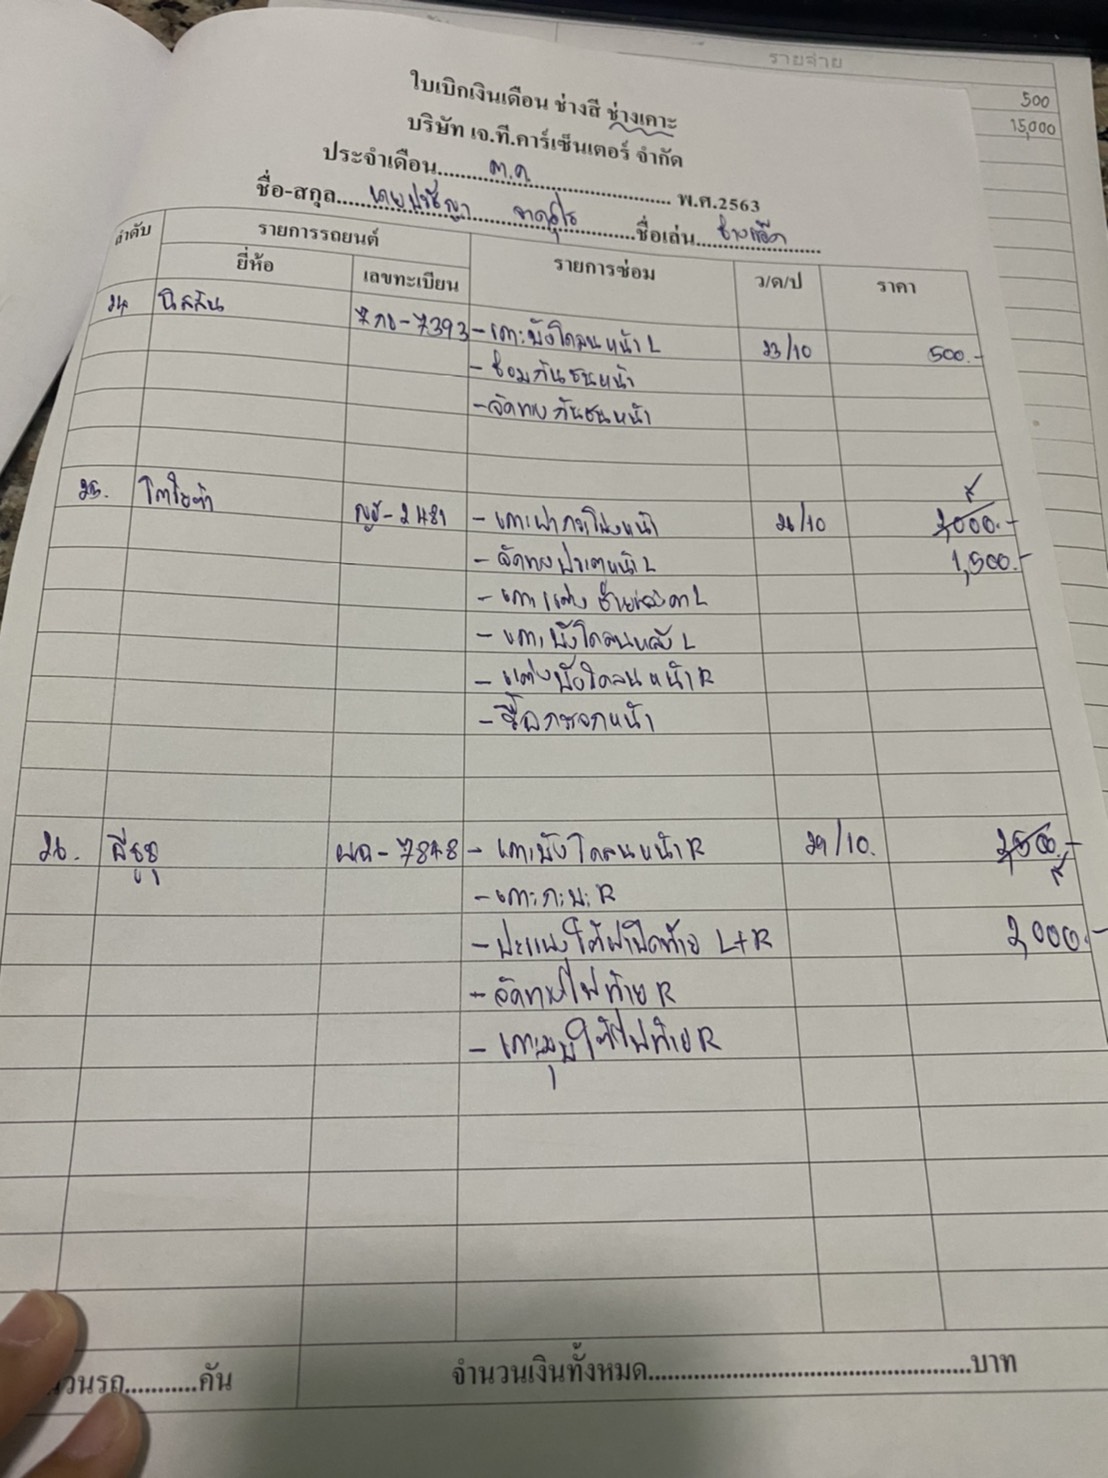 รายจ่าย
500
15,000
ใบเบิกเงินเดือน ช่างสี ช่างเคาะ
บริษัท เจ.ที.คาร์เซ็นเตอร์ จำกัด
ประจำเดือน ต.ค. พ.ศ.2563
ชื่อ-สกุล นายปรัชญา ชื่อเล่น ช่าง
ลำดับ รายการรถยนต์ รายการซ่อม ว/ด/ป ราคา
ยี่ห้อ เลขทะเบียน
24 นิสสัน -7393 - เคาะบังโคลนหน้า L 23/10 500.-
- ซ่อมกันชนหน้า
- จัดทรงกันชนหน้า
25. โตโยต้า - 2481 - เคาะฝากระโปรงหน้า 26/10 2,000.-
- จัดทรงประตูหน้า L 1,500.-
- เคาะแต่ง L
- เคาะบังโคลนหลัง L
- แต่งบังโคลนหน้า R
- หน้า
26. อีซูซุ - 7848 - เคาะบังโคลนหน้า R 29/10. 2,500.-
- เคาะกะบะ R
- ปะแผงใต้ฝาปิดท้าย L+R 2,000.-
- จัดทรงไฟท้าย R
- เคาะมุมใต้ไฟท้าย R
วนรถ...........คัน จำนวนเงินทั้งหมด..............................................บาท